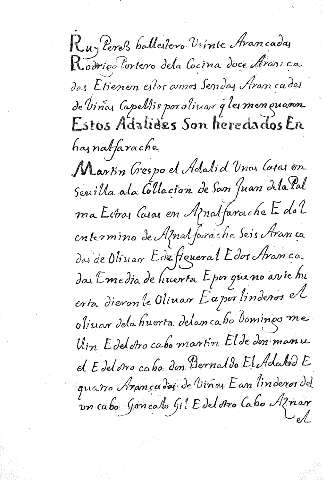 Ruy Perez ballestero Veinte Arancadas
Rodrigo Portero dela Cocina doce Aranca
das E tienen estos omes Sendas Arancadas
de Viñas Capellis por olivar q les menguann
Estos Adalides Son heredados En
hasnalfarache
Martin Crespo el Adalid Unas Casas en
Sevilla ala Collacion de San Juan dela Pal
ma E otras Casas en Aznalfarache E dol
en termino de Aznalfarache Seis Aranca
das de Olivar E de figueral E dos Aranca
das E media de huerta E por que no avie hu
erta dieronle Olivar E a por linderos el
olivar dela huerta del un cabo Domingo me
Uin E del otro cabo martin El de don manu
el E del otro cabo don Bernaldo El Adalid E
quatro Arancadas de Viñas E an linderos del
un cabo Goncalo Gil E del otro Cabo Aznar
el